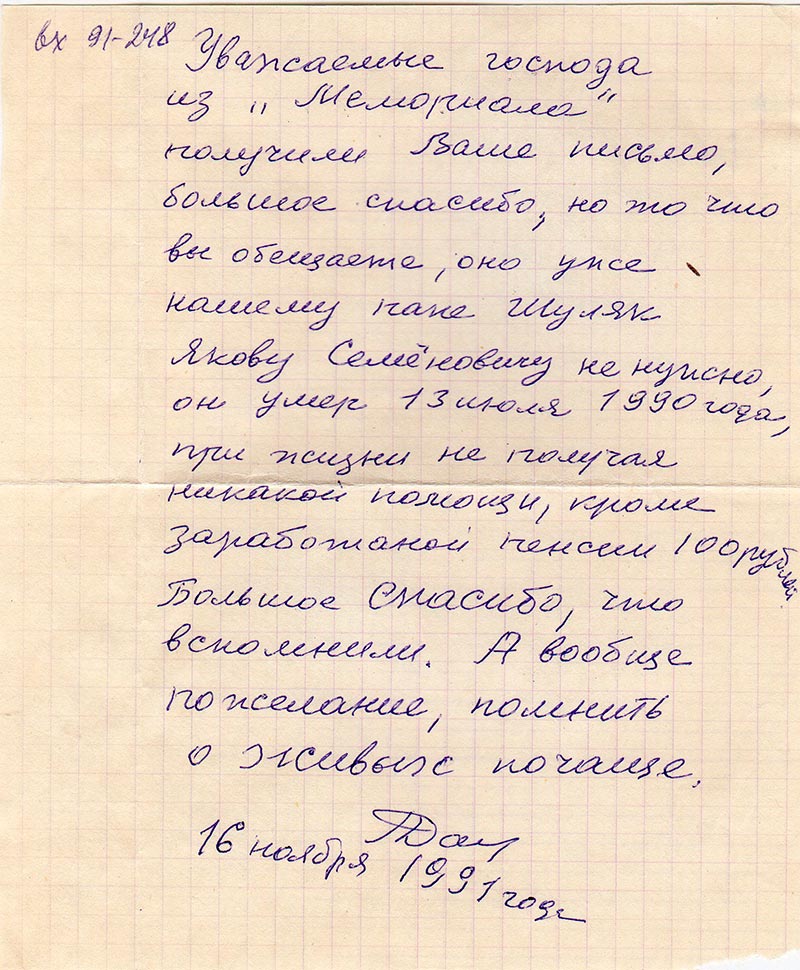 вх 91-248
Уважаемые господа
из „Мемориала"
получили Ваше письмо,
большое спасибо, но то что
вы обещаете, оно уже
нашему папе Шуляк
Якову Семёновичу не нужно,
он умер 13 июля 1990 года,
при жизни не получая
никакой помощи, кроме
заработаной пенсии 100 рублей
Большое спасибо, что
вспомнили. А вообще
пожелание, помнить
о живых почаще.
16 ноября 1991 года